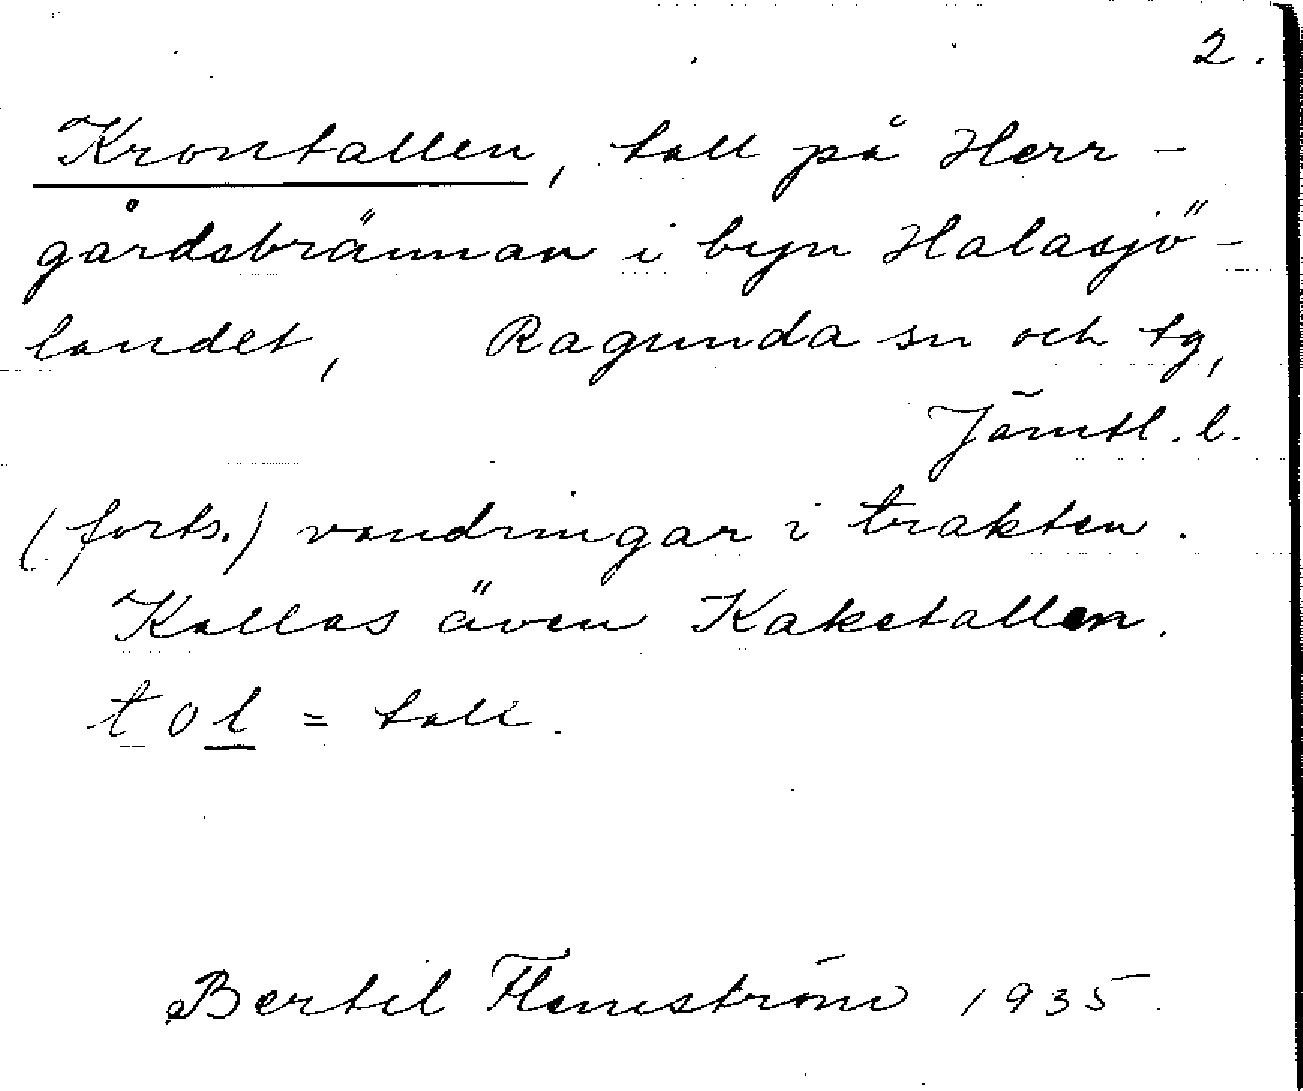 2.
Krontallen, tall på Herr-
gårdsbrännan i byn Halasjö-
landet, Ragunda sn och tg,
Jämtl. l.
(forts.) vandringar i trakten.
Kallas även Kaketallen.
tol = tall.
Bertil Flemström 1935.